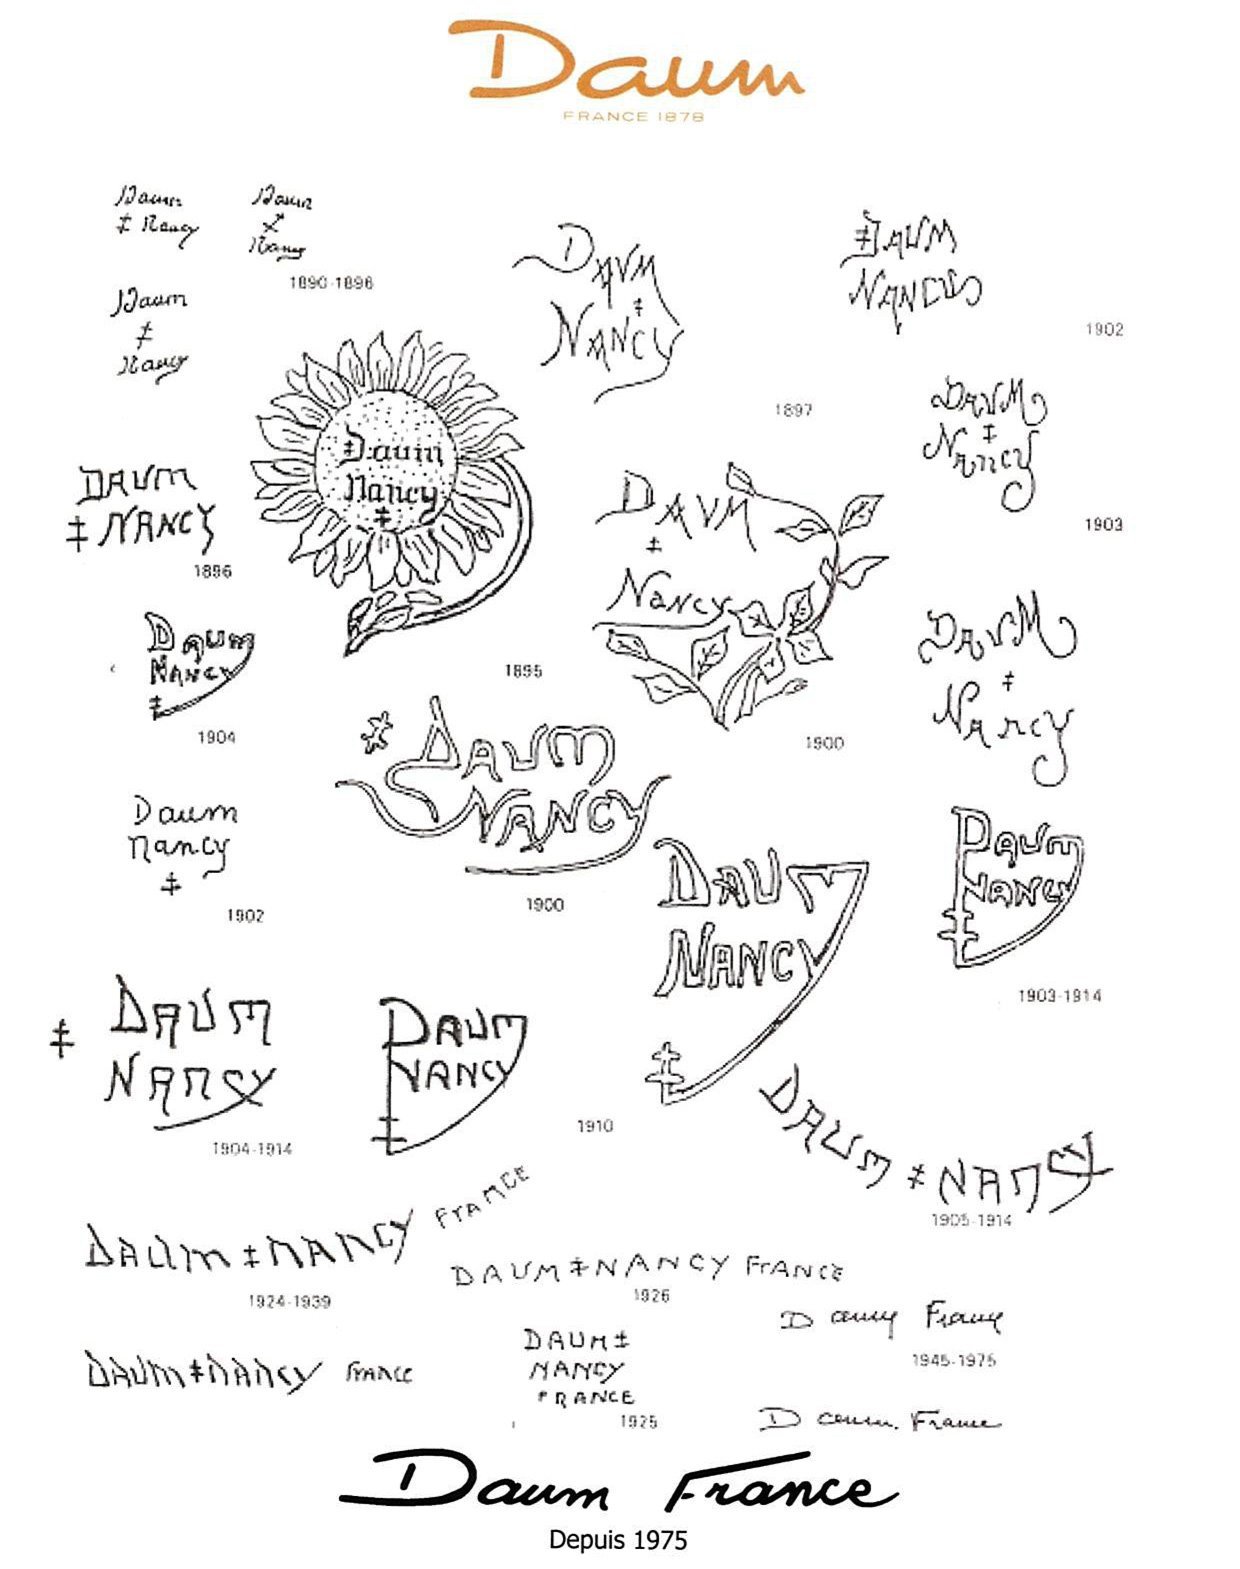 Daum
FRANCE 1878
Daum
‡ Nancy
Daum
‡
Nancy
1890-1896
Daum
‡
Nancy
DAUM
‡
NANCY
1897
‡ DAUM
NANCY
1902
DAUM
‡
Nancy
1903
Daum
Nancy
‡
1895
DAUM
‡ NANCY
1896
DAUM
‡
Nancy
1900
DAUM
NANCY
‡
1904
DAUM
‡
Nancy
‡ DAUM
NANCY
1900
Daum
nancy
‡
1902
DAUM
NANCY
‡
DAUM
NANCY
‡
1903-1914
‡ DAUM
NANCY
1904-1914
DAUM
NANCY
‡
1910
DAUM ‡ NANCY
1905-1914
DAUM ‡ NANCY FRANCE
1924-1939
DAUM ‡ NANCY FRANCE
1926
Daum France
1945-1975
DAUM ‡ NANCY FRANCE
DAUM ‡
NANCY
FRANCE
1925
Daum France
Daum France
Depuis 1975